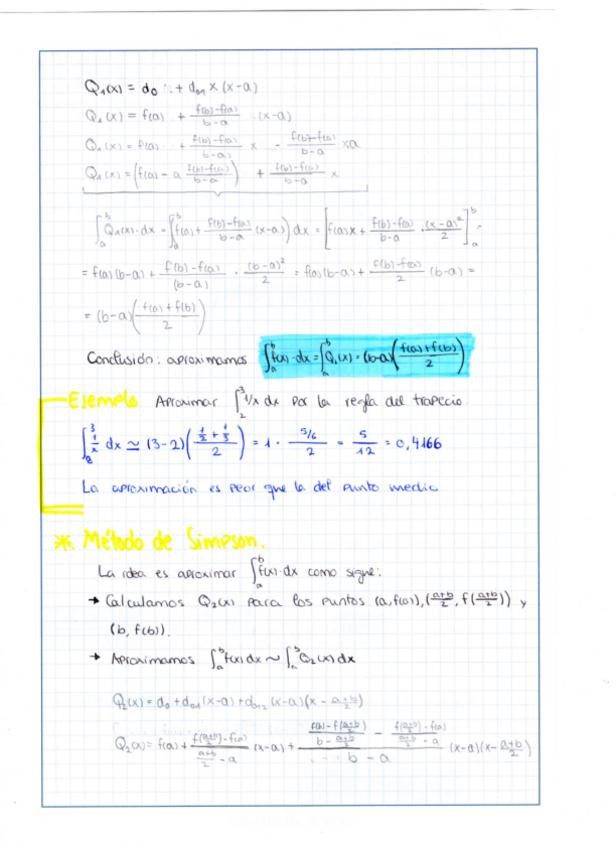 Q₁(x) = d₀ + d₀₁ × (x-a)
Q₁(x) = f(a) + \frac{f(b)-f(a)}{b-a} · (x-a)
Q₁(x) = f(a) + \frac{f(b)-f(a)}{b-a} x - \frac{f(b)-f(a)}{b-a} xa
Q₁(x) = (f(a) - a \frac{f(b)-f(a)}{b-a}) + \frac{f(b)-f(a)}{b-a} x
∫_a^b Q₁(x)·dx = ∫_a^b (f(a) + \frac{f(b)-f(a)}{b-a} (x-a)) dx = [f(a)x + \frac{f(b)-f(a)}{b-a} · \frac{(x-a)²}{2}]_a^b =
= f(a)(b-a) + \frac{f(b)-f(a)}{(b-a)} · \frac{(b-a)²}{2} = f(a)(b-a) + \frac{f(b)-f(a)}{2} (b-a) =
= (b-a)(\frac{f(a)+f(b)}{2})
Conclusión: aproximamos ∫_a^b f(x)·dx = ∫_a^b Q₁(x) = (b-a)(\frac{f(a)+f(b)}{2})
Ejemplo Aproximar ∫_2^3 1/x dx por la regla del trapecio.
∫_2^3 \frac{1}{x} dx ≃ (3-2)(\frac{\frac{1}{2}+\frac{1}{3}}{2}) = 1 · \frac{5/6}{2} = \frac{5}{12} = 0,4166
La aproximación es peor que la del punto medio
* Método de Simpson.
La idea es aproximar ∫_a^b f(x)·dx como sigue:
→ Calculamos Q₂(x) para los puntos (a,f(a)), (\frac{a+b}{2}, f(\frac{a+b}{2})) y
(b, f(b)).
→ Aproximamos ∫_a^b f(x) dx ∼ ∫_a^b Q₂(x) dx
Q₂(x) = d₀ + d₀₁(x-a) + d₀₁₂(x-a)(x - \frac{a+b}{2})
Q₂(x) = f(a) + \frac{f(\frac{a+b}{2})-f(a)}{\frac{a+b}{2}-a} (x-a) + \frac{\frac{f(b)-f(\frac{a+b}{2})}{b-\frac{a+b}{2}} - \frac{f(\frac{a+b}{2})-f(a)}{\frac{a+b}{2}-a}}{b-a} (x-a)(x-\frac{a+b}{2})